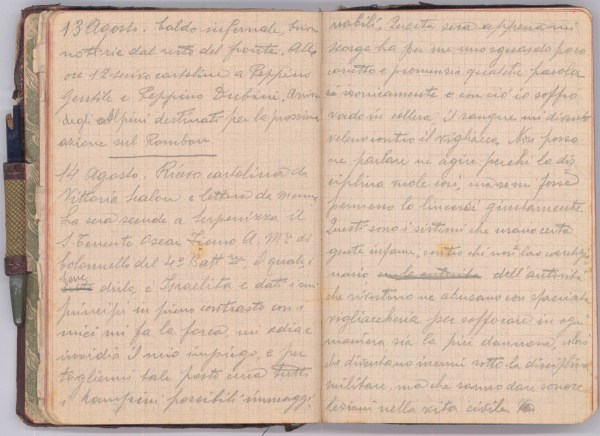 13 Agosto. Caldo infernale, buone
notizie dal resto del fronte. Alle
ore 12 scrivo cartoline a Peppino
Gentile e Peppino Dubini. Arrivo
degli Alpini destinati per la prossima
azione sul Rombon
14 Agosto. Ricevo cartolina da
Vittorio Scalon e lettera da Mamma
La sera scende a Serpenizza il
S. Tenente Oscar A. M. di
Colonnello del 4º Batt. il quale, è
drilo, e Israelita e dati i suoi
principi in pieno contrasto con i
miei mi fa la forca, mi odia e
invidia il mio impiego, e per
togliermi tale posto cerca tutti
i possibili immagi
nabili. Questa sera appena mi
scorge ha per me uno sguardo poco
corretto e pronunzia qualche parola
sì ironicamente e con ciò io soffro
vado in collera, il sangue mi diventa
veleno contro il vigliacco. Non posso
ne parlare ne agire perchè la dis
ciplina vuole così, ma se mi fosse
permesso lo giustamente.
Questi sono i sistemi che usano certa
gente infame, contro chi non ha
dell'autorità
che rivestono ne abusano con
vigliaccheria per soffocare in ogni
maniera sia la più dannosa,
che diventano inermi sotto la disciplina
militare, ma che sanno dare sonore
lezioni nella vita civile.